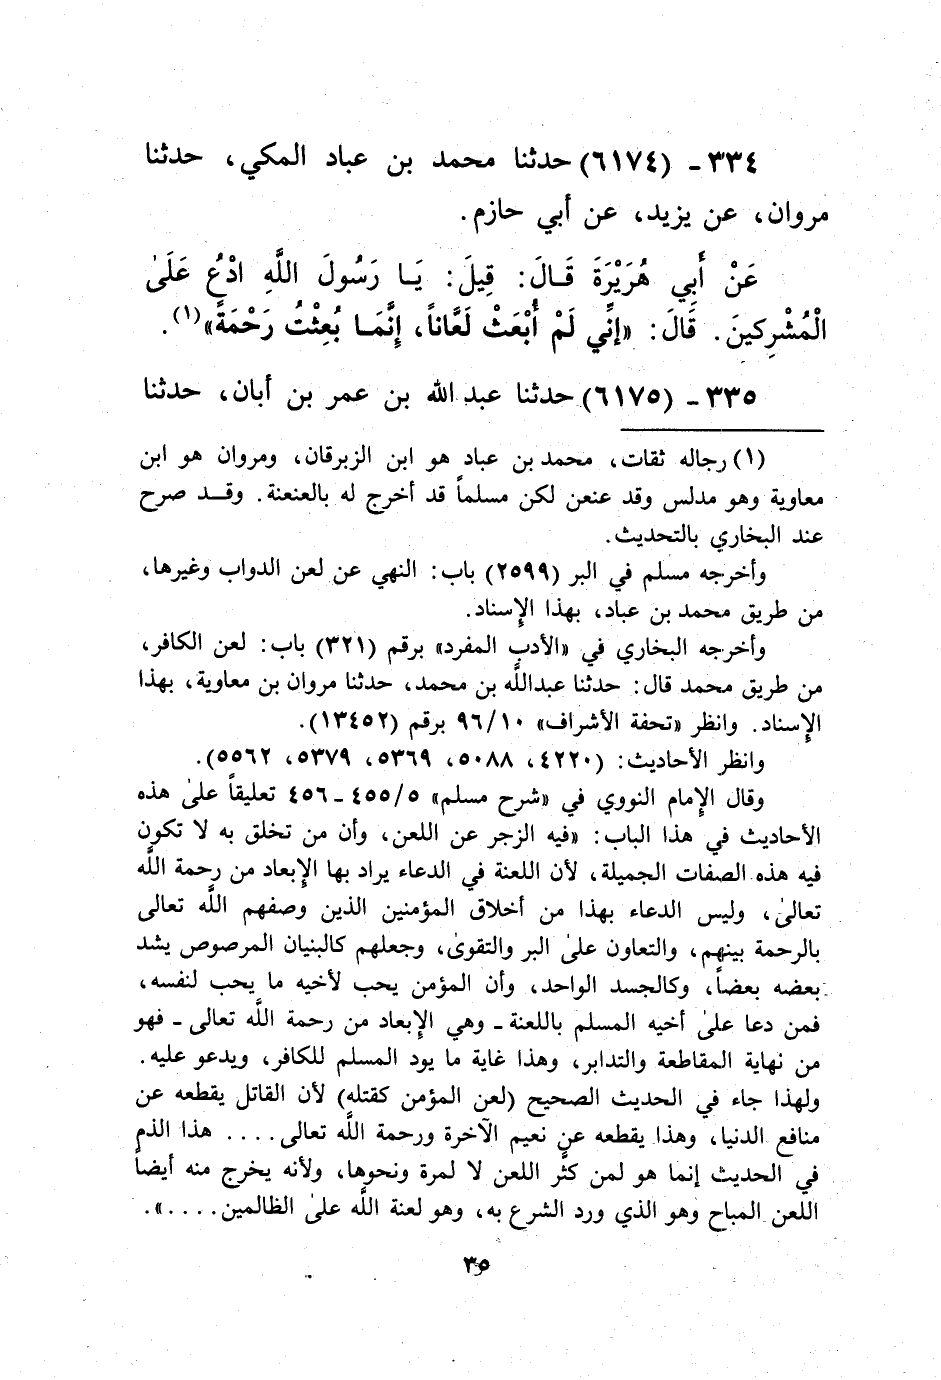 ٣٣٤ - (٦١٧٤) حدثنا محمد بن عباد المكي، حدثنا
مروان، عن يزيد، عن أبي حازم.
عَنْ أَبِي هُرَيْرَةَ قَالَ: قِيلَ: يَا رَسُولَ اللَّهِ ادْعُ عَلَىٰ
الْمُشْرِكِينَ. قَالَ: «إِنِّي لَمْ أُبْعَثْ لَعَّاناً، إِنَّمَا بُعِثْتُ رَحْمَةً»(١).
٣٣٥ - (٦١٧٥) حدثنا عبد الله بن عمر بن أبان، حدثنا
(١) رجاله ثقات، محمد بن عباد هو ابن الزبرقان، ومروان هو ابن
معاوية وهو مدلس وقد عنعن لكن مسلماً قد أخرج له بالعنعنة. وقد صرح
عند البخاري بالتحديث.
وأخرجه مسلم في البر (٢٥٩٩) باب: النهي عن لعن الدواب وغيرها،
من طريق محمد بن عباد، بهذا الإسناد.
وأخرجه البخاري في «الأدب المفرد» برقم (٣٢١) باب: لعن الكافر،
من طريق محمد قال: حدثنا عبدالله بن محمد، حدثنا مروان بن معاوية، بهذا
الإسناد. وانظر «تحفة الأشراف» ٩٦/١٠ برقم (١٣٤٥٢).
وانظر الأحاديث: (٤٢٢٠، ٥٠٨٨، ٥٣٦٩، ٥٣٧٩، ٥٥٦٢).
وقال الإمام النووي في «شرح مسلم» ٤٥٥/٥ - ٤٥٦ تعليقاً علىٰ هذه
الأحاديث في هذا الباب: «فيه الزجر عن اللعن، وأن من تخلق به لا تكون
فيه هذه الصفات الجميلة، لأن اللعنة في الدعاء يراد بها الإبعاد من رحمة اللَّه
تعالىٰ، وليس الدعاء بهذا من أخلاق المؤمنين الذين وصفهم اللَّه تعالى
بالرحمة بينهم، والتعاون علىٰ البر والتقوىٰ، وجعلهم كالبنيان المرصوص يشد
بعضه بعضاً، وكالجسد الواحد، وأن المؤمن يحب لأخيه ما يحب لنفسه،
فمن دعا علىٰ أخيه المسلم باللعنة - وهي الإبعاد من رحمة اللَّه تعالى - فهو
من نهاية المقاطعة والتدابر، وهذا غاية ما يود المسلم للكافر، ويدعو عليه.
ولهذا جاء في الحديث الصحيح (لعن المؤمن كقتله) لأن القاتل يقطعه عن
منافع الدنيا، وهذا يقطعه عن نعيم الآخرة ورحمة اللَّه تعالى.... هذا الذم
في الحديث إنما هو لمن كثُر اللعن لا لمرة ونحوها، ولأنه يخرج منه أيضاً
اللعن المباح وهو الذي ورد الشرع به، وهو لعنة اللَّه علىٰ الظالمين....».
٣٥